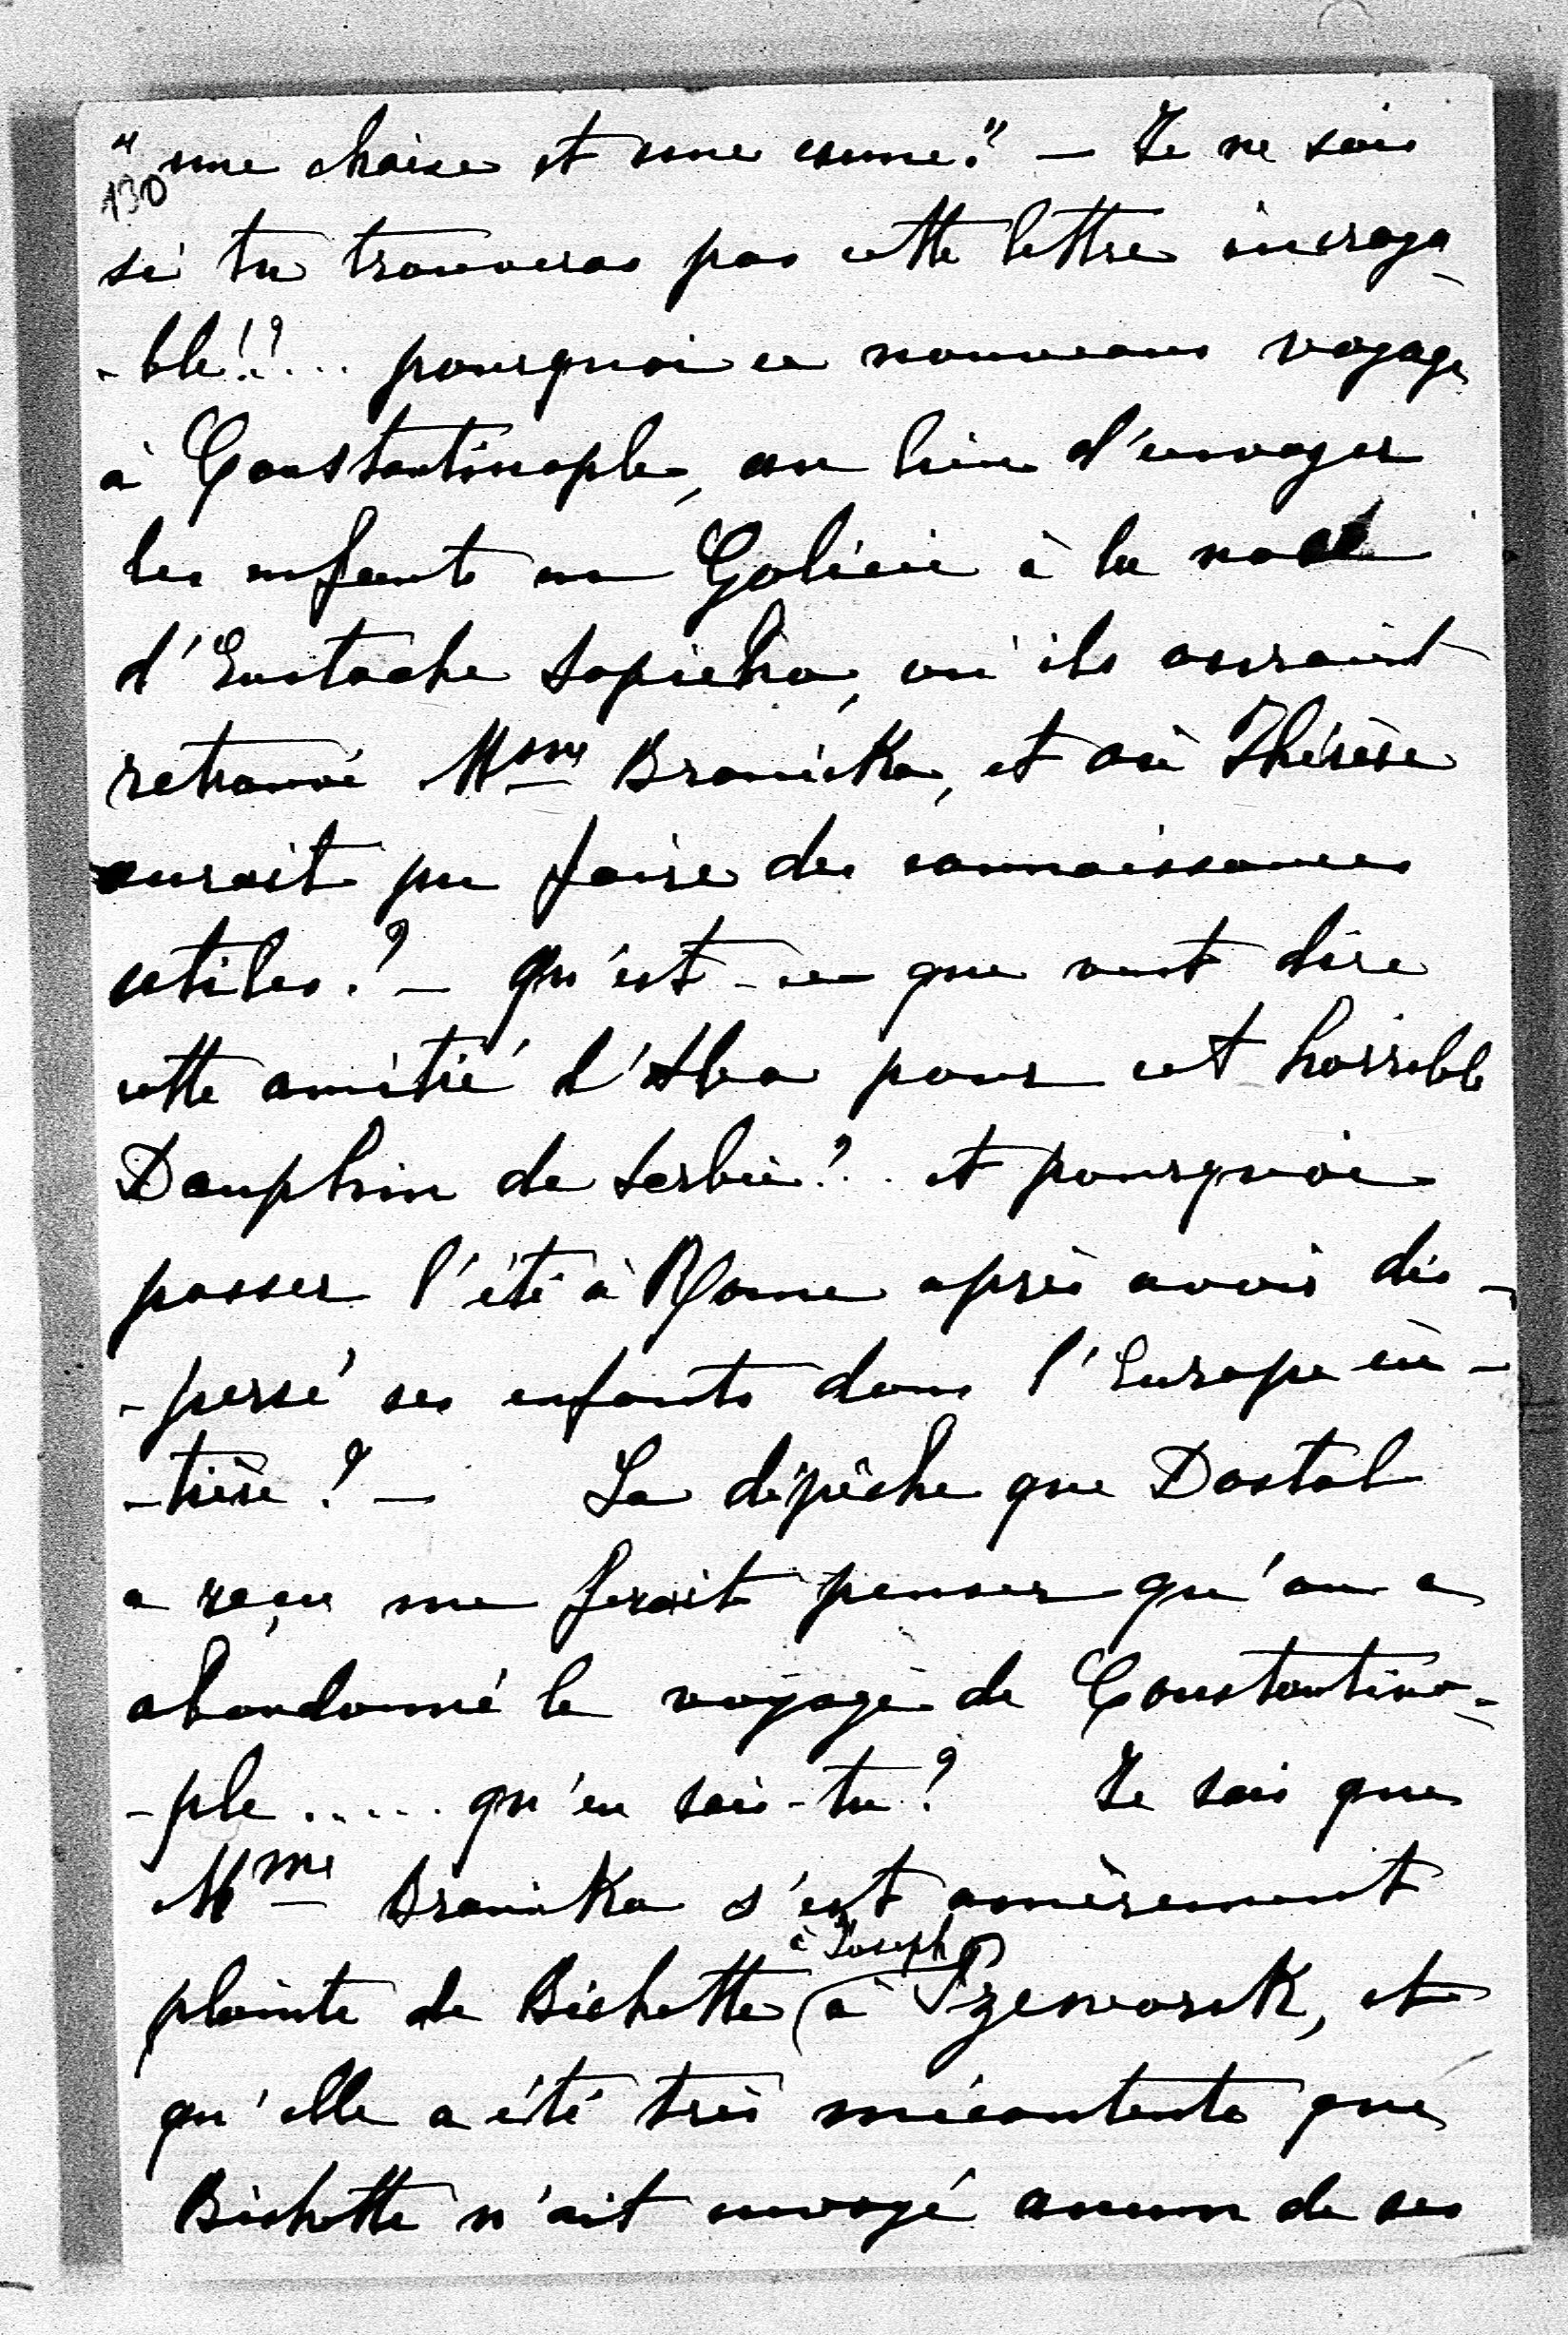 "une chaise et une canne." — Je ne sais
130
si tu trouveras pas cette lettre incroya-
-ble!?... pourquoi ce nouveau voyage
à Constantinople, au lieu d'envoyer
les enfants en Galicie à la noce
d'Eustache Sapieha, où ils auraient
retrouvé Mme Branicka, et où Thérèse
aurait pu faire des connaissances
utiles? — Qu'est-ce que veut dire
cette amitié d'Aba pour cet horrible
Dauphin de Serbie?.. et pourquoi
passer l'été à Rome après avoir dis-
-persé ses enfants dans l'Europe en-
-tière? — La dépêche que Dostal
a reçu me ferait penser qu'on a
abandonné le voyage de Constantino-
-ple..... qu'en sais-tu? Je sais que
Mme Branicka s'est amèrement
à Joseph
plainte de Bichette (à Przeworsk, et
qu'elle a été très mécontente que
Bichette n'ait envoyé aucun de ses